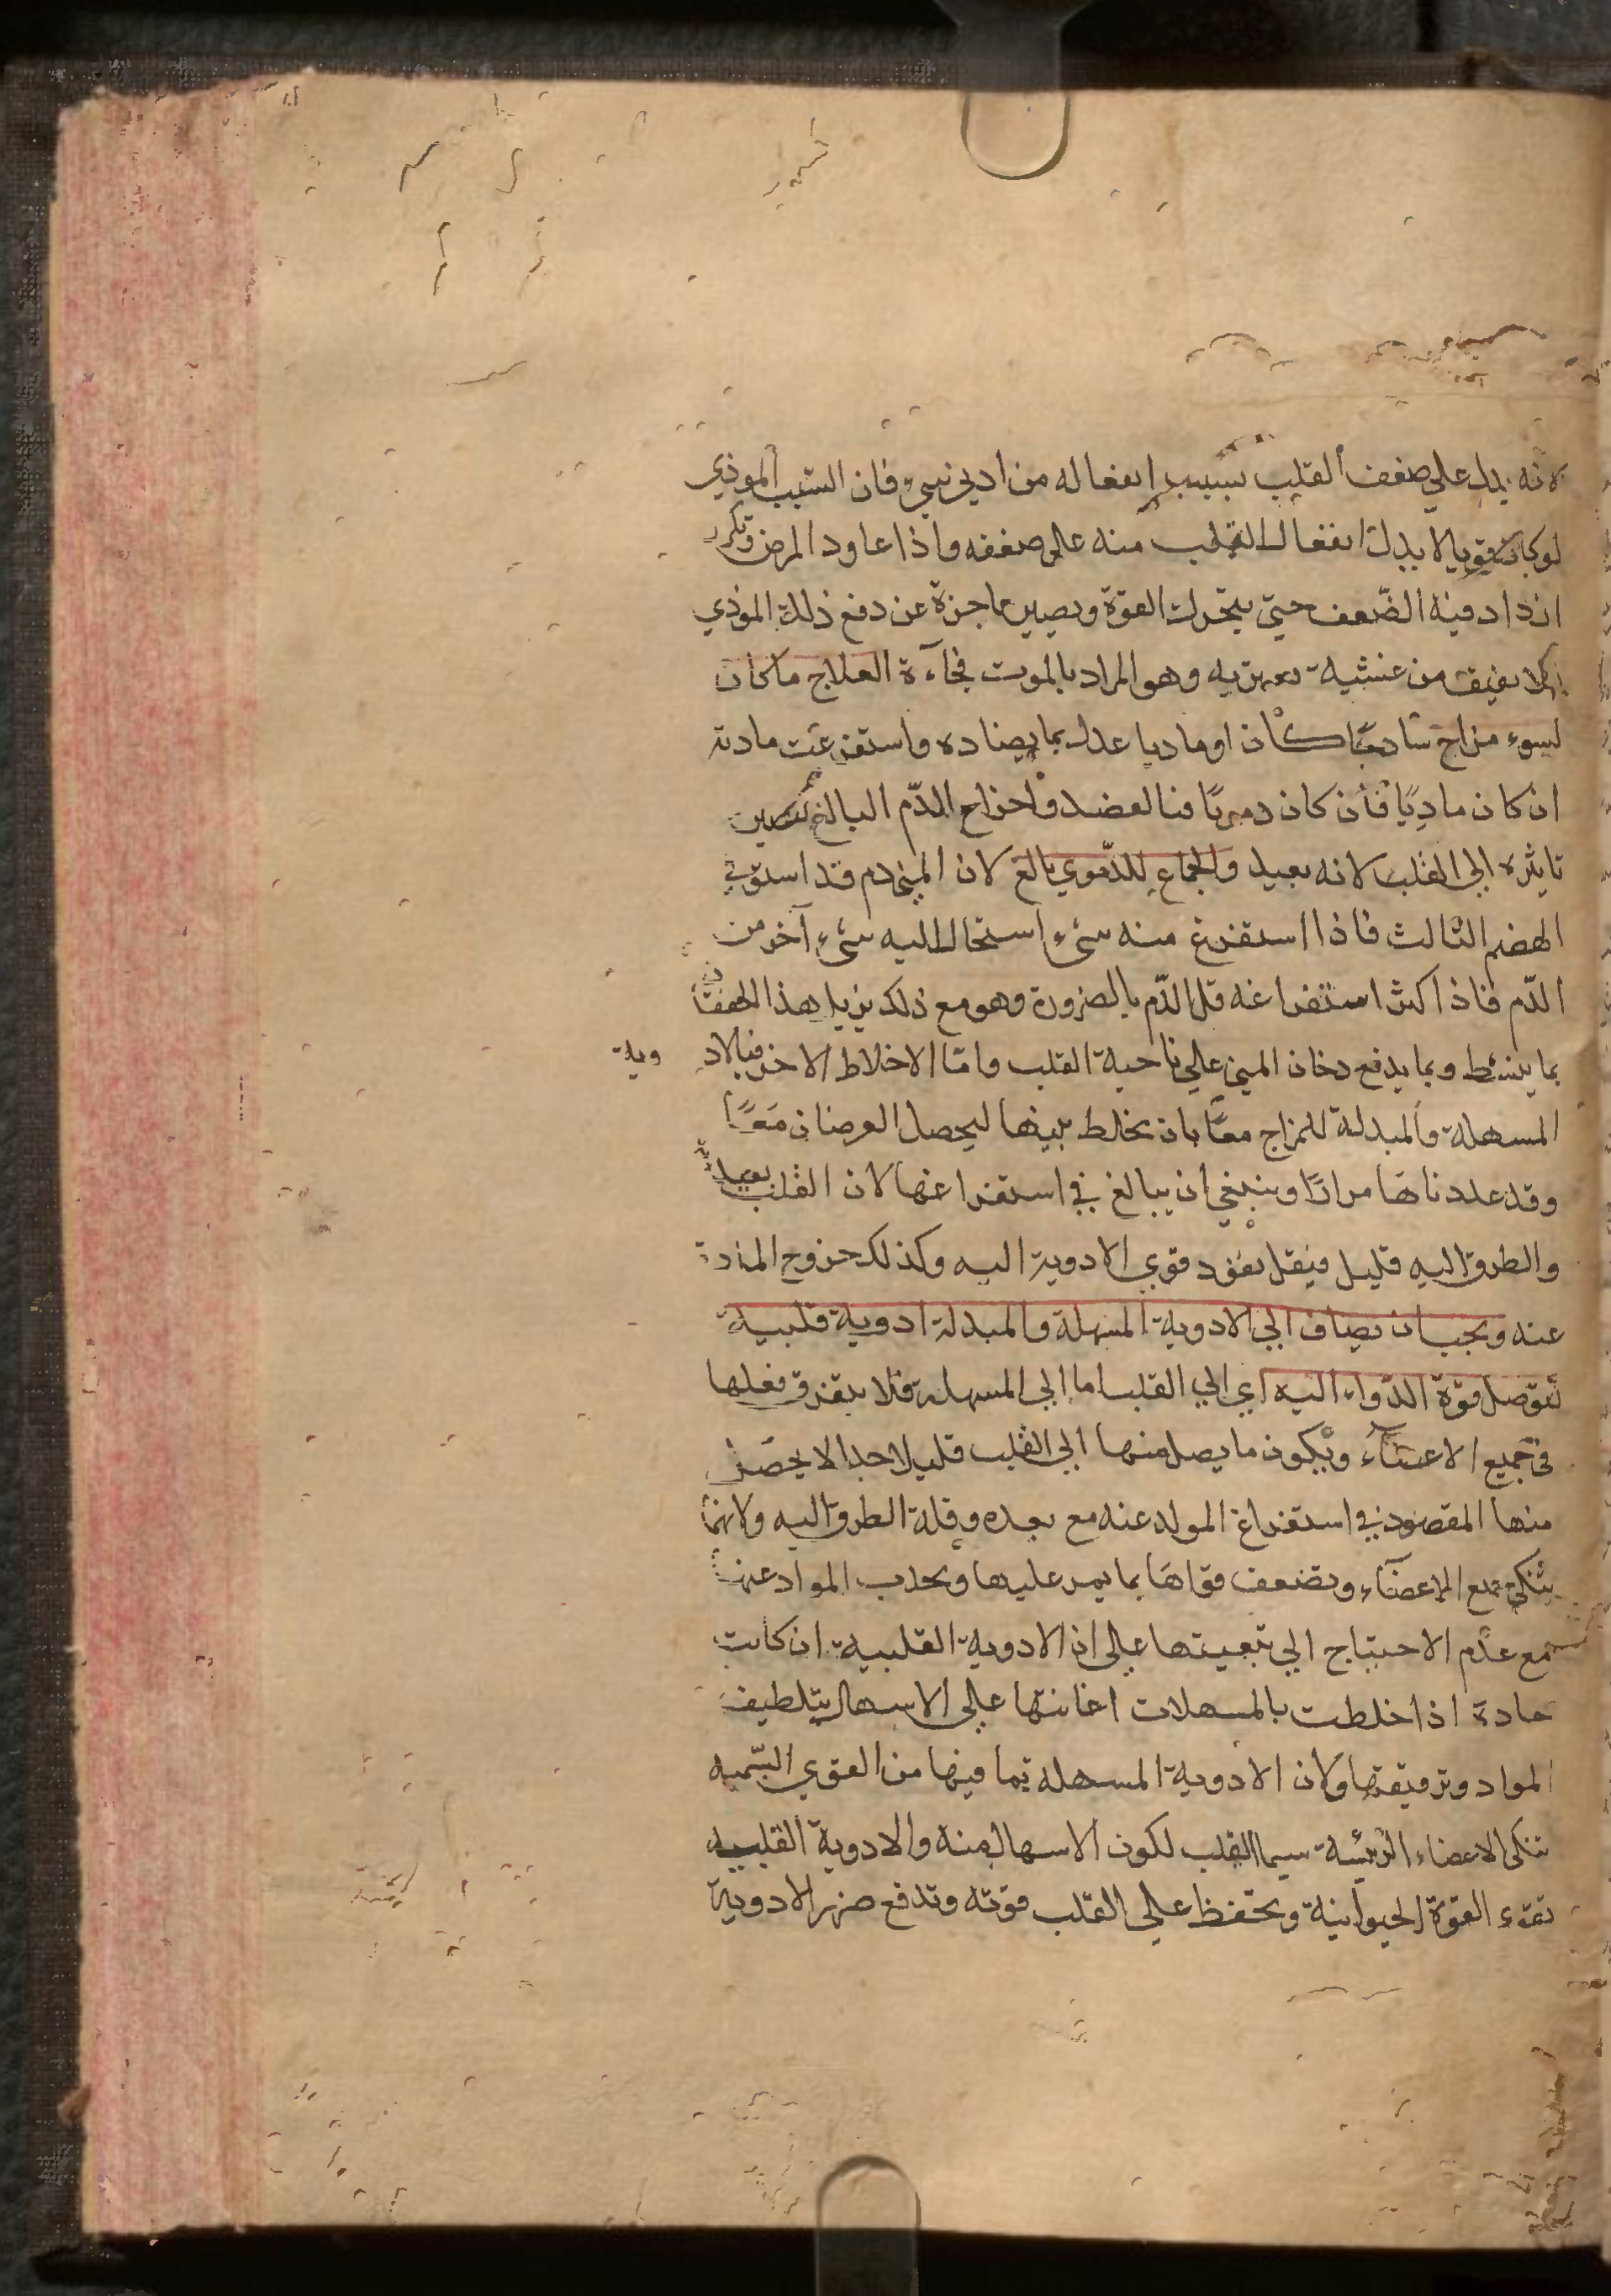 لانه يدل علي ضعف القلب بسبب انفعاله من ادني شيء فان السبب الموذي
لو كان قويا لا يدل انفعال القلب منه على ضعفه واذا عاود المرض وتكرر
ازداد فيه الضّعف حتيّ تتحرك القوة ويصير عاجزة عن دفع ذلك الموذي
فلا يفيق من غشية تعتريه وهو المراد بالموت فجآءة العلاج ما كان
لسوء مزاج ساذجًا كان او ماديا عدل بما يضاده واستفرغت مادته
ان كان ماديًا فان كان دمويًا فبالفصد واخراج الدّم البالغ
تاثيره الي القلب لانه بعيد والجماع للدّموي بالغ لان المني دم قد استوفي
الهضم الثالث فاذا استفرغ منه شيء استحال اليه شيء آخر من
الدّم فاذا اكثر استفراغه قل الدّم بالضرورة وهو مع ذلك يزيل هذا الخفقان
بما يبسط وبما يدفع دخان المني علي ناحية القلب وامّا الاخلاط الاخر فبالادوية
المسهلة والمبدلة للمزاج معًا بان يخلط بينها ليحصل الغرضان معًا
وقد عددناها مرارًا وينبغي ان يبالغ في استفراغها لان القلب بعيد
والطرق اليه قليل فيقل نفوذ قوي الادوية اليه وكذلك خروج المادة
عنه ويجب ان يضاف الي الادوية المسهلة والمبدلة ادوية قلبية
لتوصل قوة الدّواء اليه اي الي القلب اما الي المسهلة فلا يتفرق فعلها
في جميع الاعضآء ويكون ما يصل منها الي القلب قليلا جدا لا يحصل
منها المقصود في استفراغ المواد عنه مع بعده وقلة الطرق اليه ولانها
تنكي جميع الاعضآء وتضعف قواها بما يمر عليها وبجذب المواد عنها
مع عدم الاحتياج الي تنقيتها علي ان الادوية القلبية ان كانت
حادة اذا خلطت بالمسهلات اعانتها علي الاسهال بتلطيف
المواد وترقيقها ولان الادوية المسهلة بما فيها من القوي السّمية
تنكي الاعضاء الرئيسة سيما القلب لكون الاسهال منه والادوية القلبية
تقوي القوة الحيوانية وتحفظ علي القلب قوته وتدفع ضرر الادوية